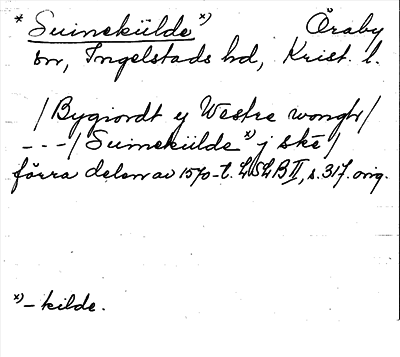 * Suinekülde x) Öraby
sn, Ingelstads hd, Krist. l.
/Bygiordt y Westre wongh/
---/Suinekülde x) j ske/
förra delen av 1570-t. LSLB II, s. 317. orig.
x) - kilde.